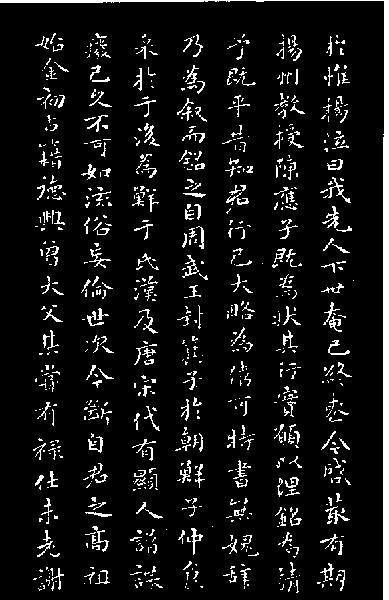 於惟楊泣曰我先人下世奄已終喪今啓菆有期
揚州教授陳應子既為狀其行實願以埋銘為請
予既平昔知君行已大略為信可恃書無媿辭
乃為叙而銘之自周武王封箕子於朝鮮子仲食
采於于後為鮮于氏漢及唐宋代有顯人譜諜
廢已久不可如流俗妄倫世次今斷自君之高祖
始金初占籍德興曾大父其嘗有祿仕未老謝